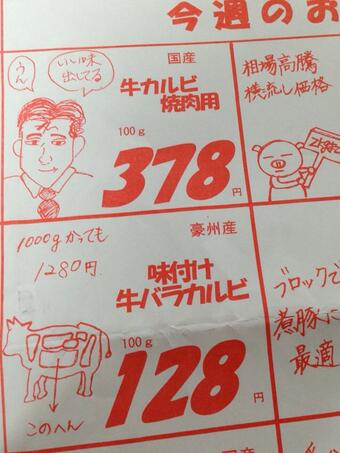 今週のお
うん
いい味
出してる
国産
牛カルビ
焼肉用
100g
378円
相場高騰
横流し価格
1000gかっても
1280円
豪州産
味付け
牛バラカルビ
100g
128円
このへん
ブロックで
煮豚に
最適
国産